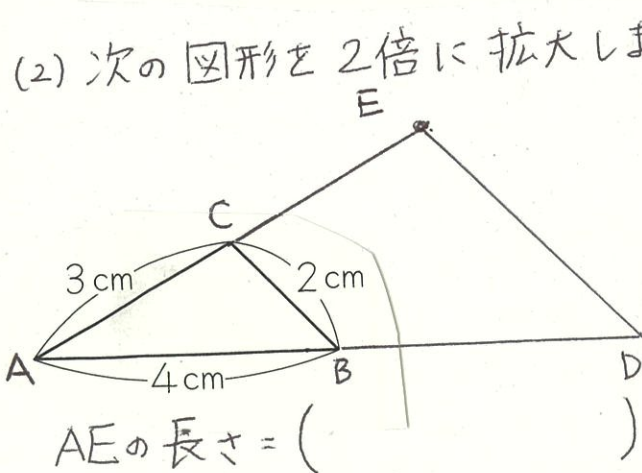 (2) 次の図形を2倍に拡大しま
E
C
3cm
2cm
A
4cm
B
D
AEの長さ=( )